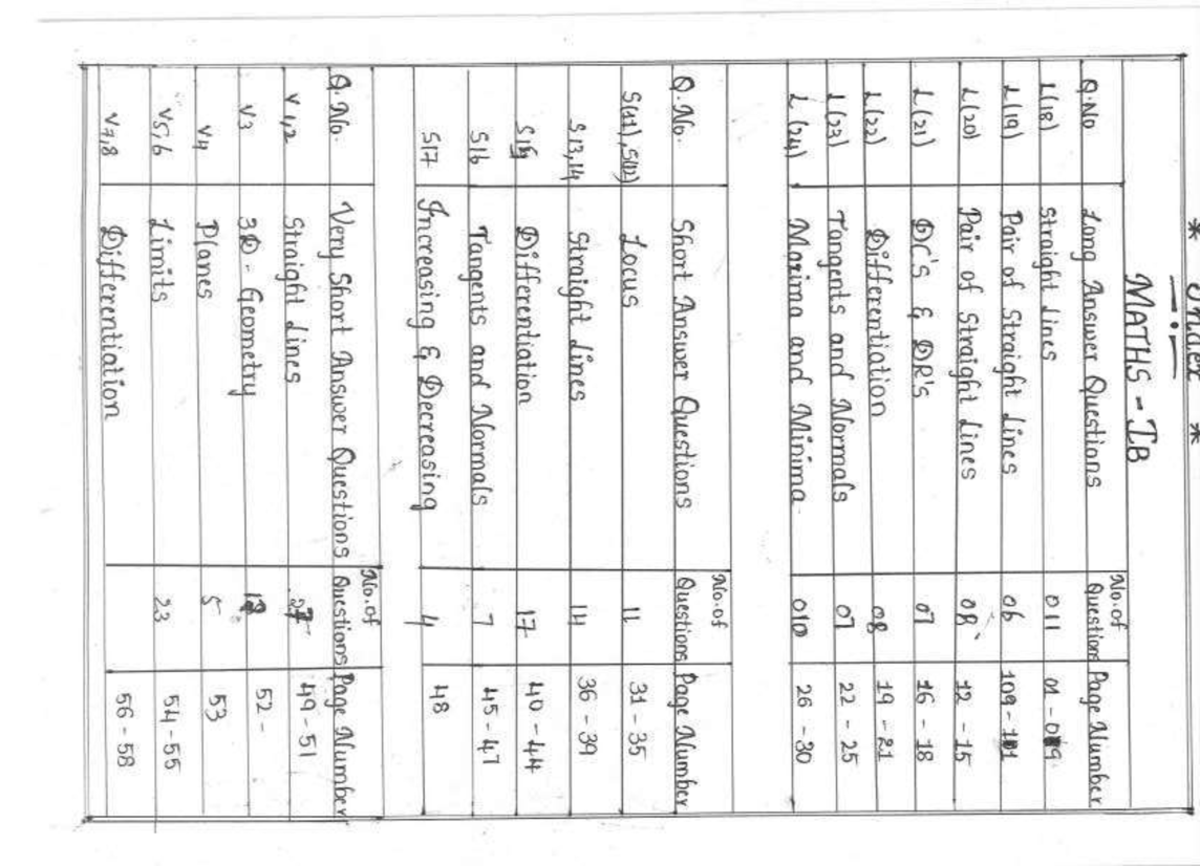 * Index *
MATHS - IB
Q.No Long Answer Questions No.of Questions Page Number
L(18) Straight Lines 011 01 - 09
L(19) Pair of Straight Lines 06 109 - 11
L(20) Pair of Straight Lines 08 12 - 15
L(21) DC's & DR's 07 16 - 18
L(22) Differentiation 08 19 - 21
L(23) Tangents and Normals 07 22 - 25
L(24) Maxima and Minima 010 26 - 30
Q.No. Short Answer Questions No.of Questions Page Number
S(11), S(12) Locus 11 31 - 35
S 13,14 Straight Lines 14 36 - 39
S15 Differentiation 17 40 - 44
S16 Tangents and Normals 7 45 - 47
S17 Increasing & Decreasing 4 48
Q.No. Very Short Answer Questions No.of Questions Page Number
V 1,2 Straight Lines 49 - 51
V3 3D - Geometry 52 -
V4 Planes 5 53
V5,6 Limits 23 54 - 55
V7,8 Differentiation 56 - 58